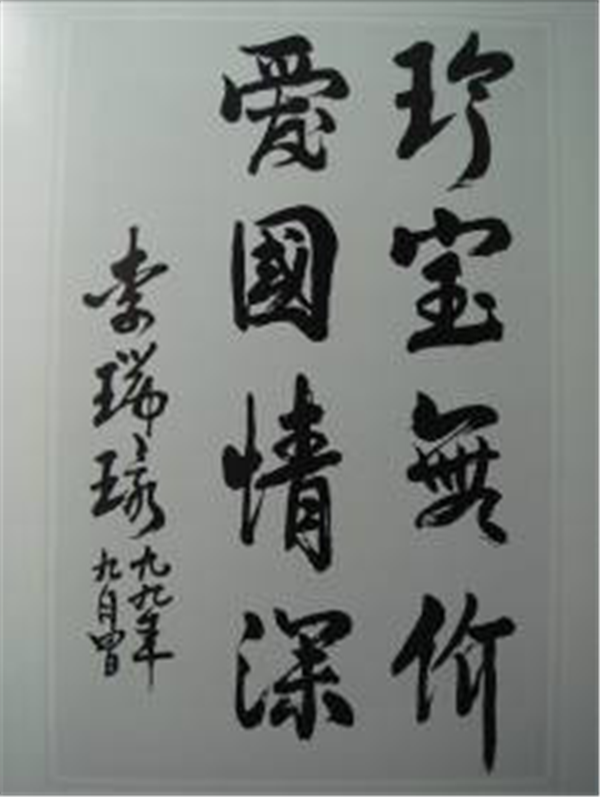 珍宝無价
愛國情深
李瑞環
九九年
九月